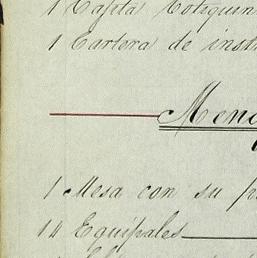 1 Cajita Botiquin
1 Cartera de inst
Mena
1 Mesa con su p
14 Equipales